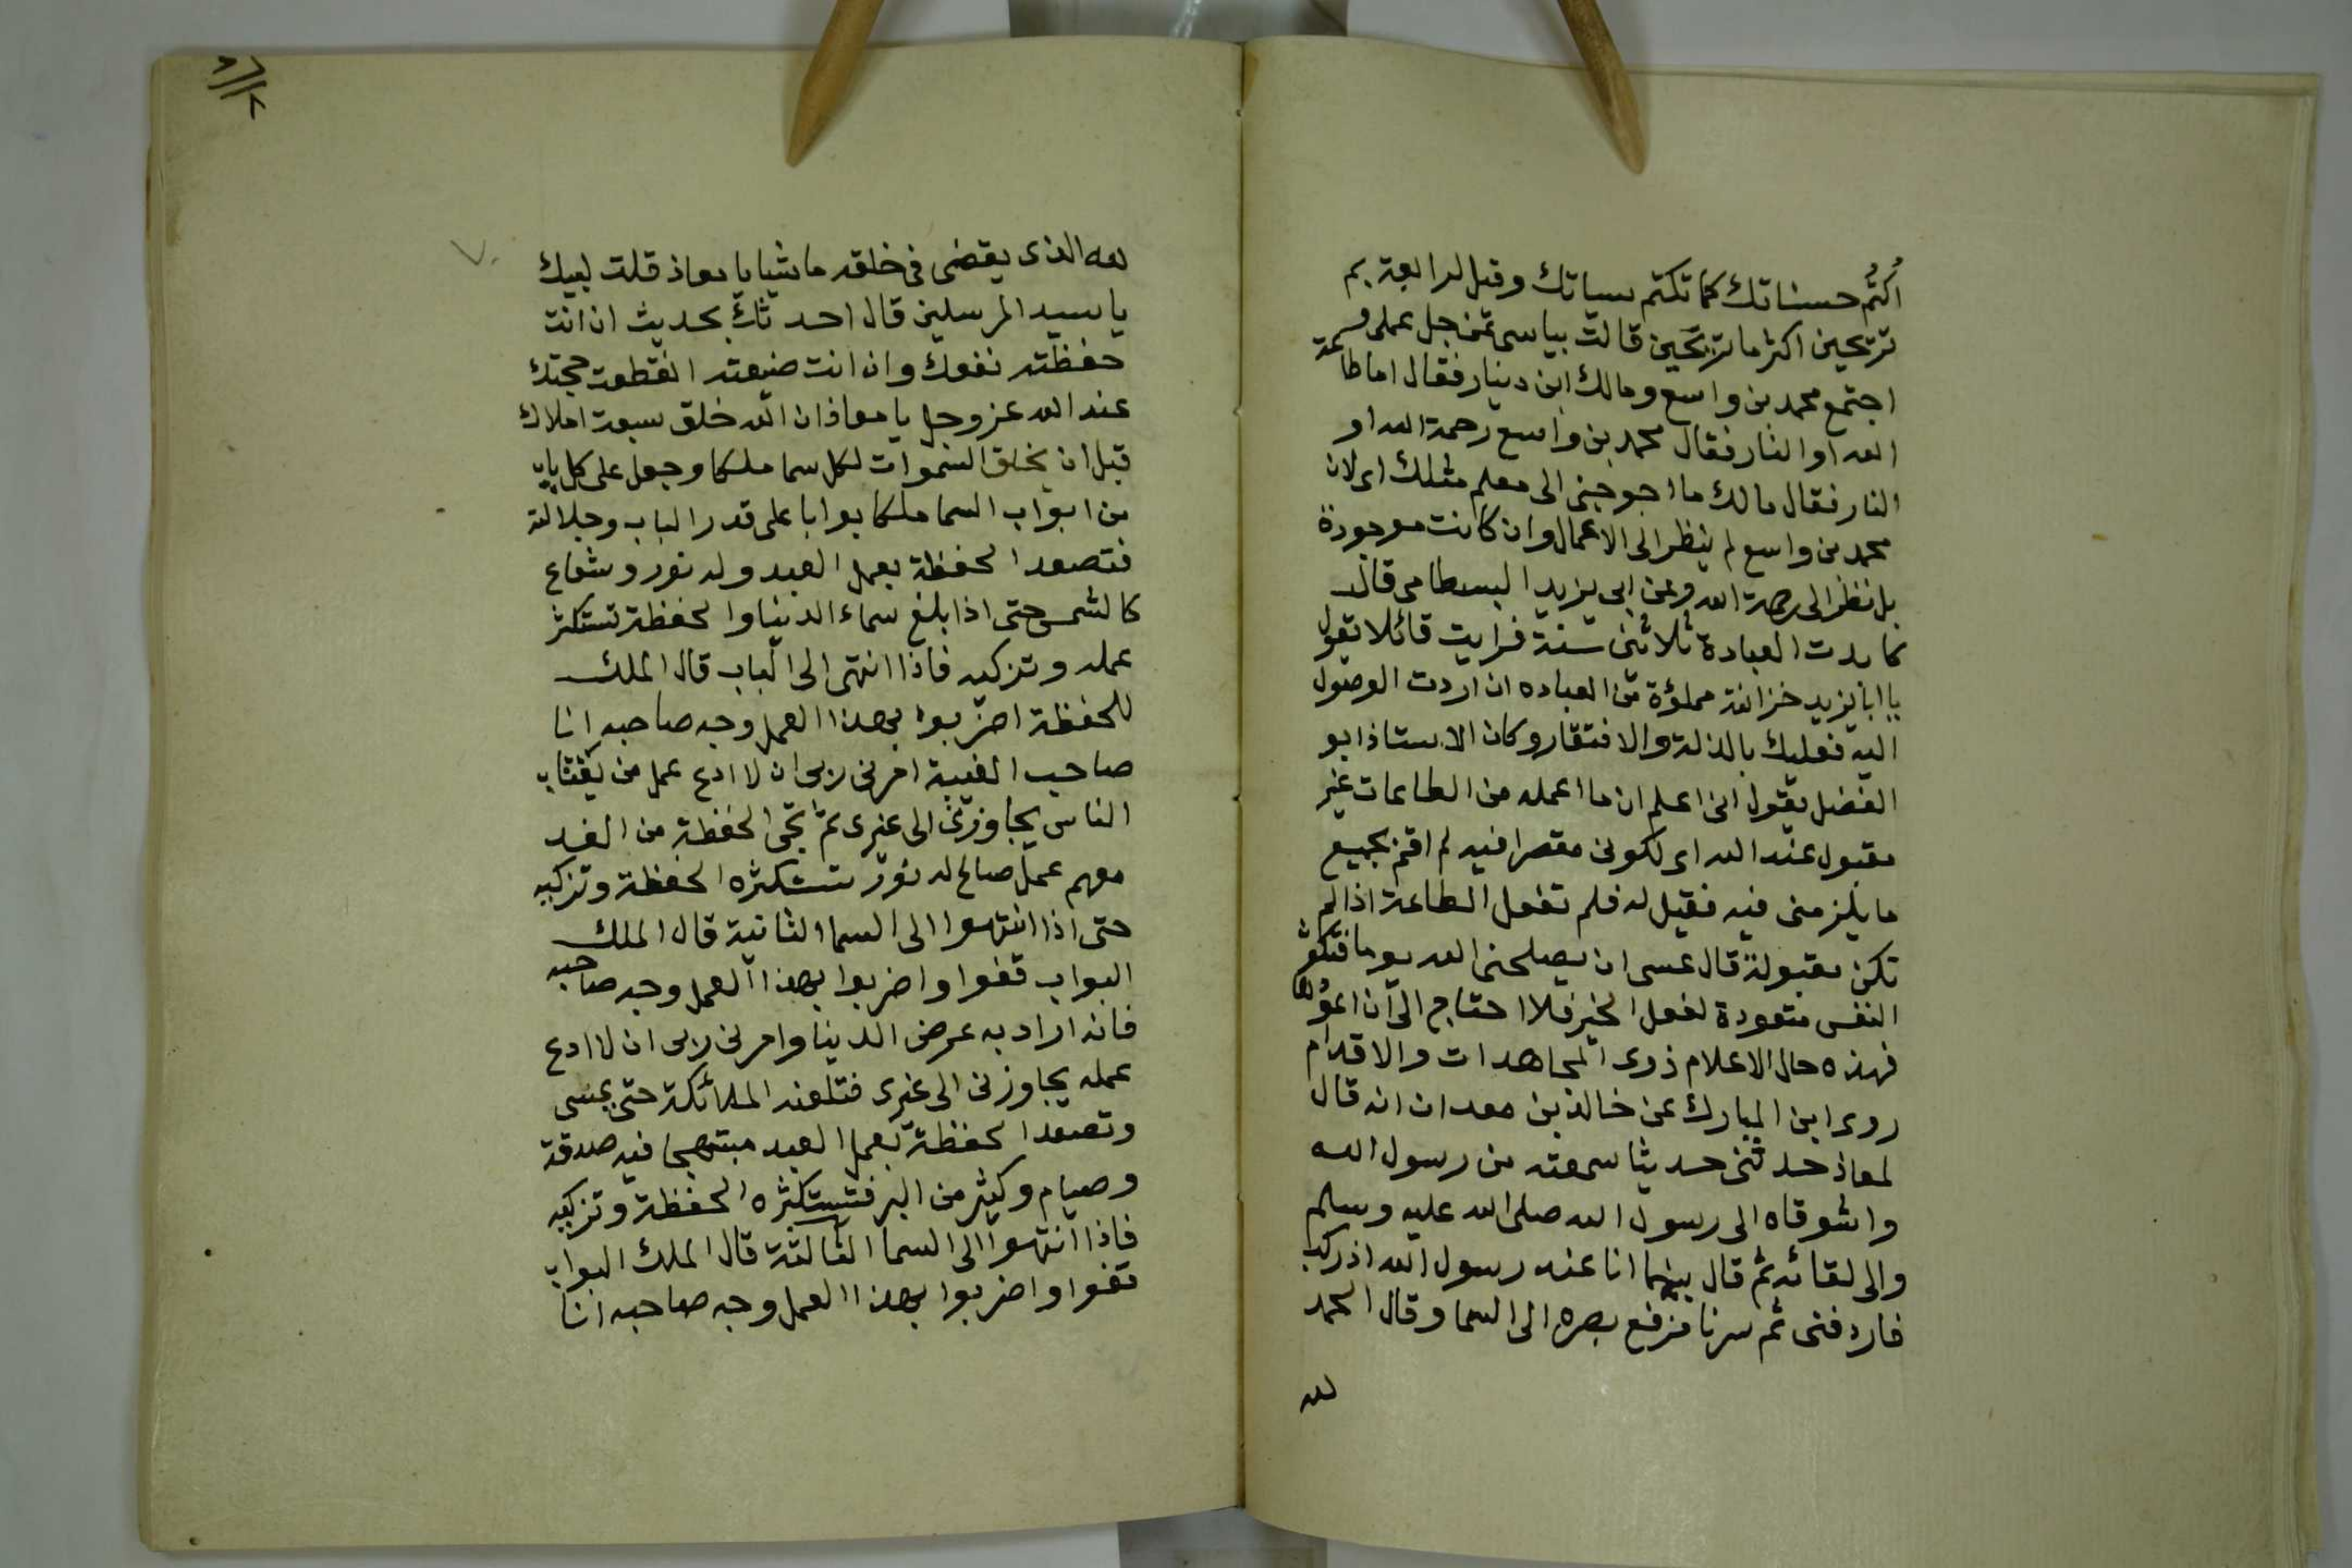 اكتُم حسناتك كما تكتم سياتك وقيل لرابعة بم
ترتجين اكثر ما ترتجين قالت بياسى من جل عملى و
اجتمع محمد بن واسع ومالك ابن دينار فقال اما طاعة
الله او النار فقال محمد بن واسع رحمة الله او
النار فقال مالك ما احوجنى الى معلم مثلك اى لان
محمد بن واسع لم ينظر الى الاعمال وان كانت موجودة
بل نظر الى رحمة الله وعن ابى يزيد البسطامى قال
كابدت العبادة ثلاثين سنة فرايت قائلا يقول
يا ابا يزيد خزائنه مملؤة من العباده ان اردت الوصول
اليه فعليك بالذلة والافتقار وكان الاستاذ ابو
الفضل يقول انى اعلم ان ما اعمله من الطاعات غير
مقبول عند الله اى لكونى مقصرا فيه لم اقم بجميع
ما يلزمنى فيه فقيل له فلم تفعل الطاعة اذا لم
تكن مقبولة قال عسى ان يصلحنى الله يوما فتكون
النفس متعودة لفعل الخير فلا احتاج الى ان اعودها
فهذه حال الاعلام ذوى المجاهدات والاقدام
روى ابن المبارك عن خالد بن معدان انه قال
لمعاذ حدثنى حديثا سمعته من رسول الله
واشوقاه الى رسول الله صلى الله عليه وسلم
والى لقائه ثم قال بينما انا عند رسول الله اذ ركب
فاردفنى ثم سرنا فرفع بصره الى السما وقال الحمد
لله
لله الذى يقضى فى خلقه ما يشا يا معاذ قلت لبيك
يا سيد المرسلين قال احدثك بحديث ان انت
حفظته نفعك وان انت ضيعته انقطعت حجتك
عند الله عز وجل يا معاذ ان الله خلق سبعة املاك
قبل ان يخلق السموات لكل سما ملكا وجعل على كل باب
من ابواب السما ملكا بوابا على قدر الباب وجلالته
فتصعد الحفظة بعمل العبد وله نور وشعاع
كالشمس حتى اذا بلغ سماء الدنيا والحفظة تستكثر
عمله وتزكيه فاذا انتهى الى الباب قال الملك
للحفظة اضربوا بهذا العمل وجه صاحبه انا
صاحب الغيبة امرنى ربى ان لا ادع عمل من يغتاب
الناس يجاوزنى الى غيرى ثم تجى الحفظة من الغد
معهم عمل صالح له نور تستكثره الحفظة وتزكيه
حتى اذا انتهوا الى السما الثانية قال الملك
البواب قفوا واضربوا بهذا العمل وجه صاحبه
فانه اراد به عرض الدنيا وامرنى ربى ان لا ادع
عمله يجاوزنى الى غيرى فتلعنه الملائكة حتى يمسى
وتصعد الحفظة بعمل العبد مبتهجا فيه صدقة
وصيام وكثير من البر فتستكثره الحفظة وتزكيه
فاذا انتهوا الى السما الثالثة قال الملك البواب
قفوا واضربوا بهذا العمل وجه صاحبه انا